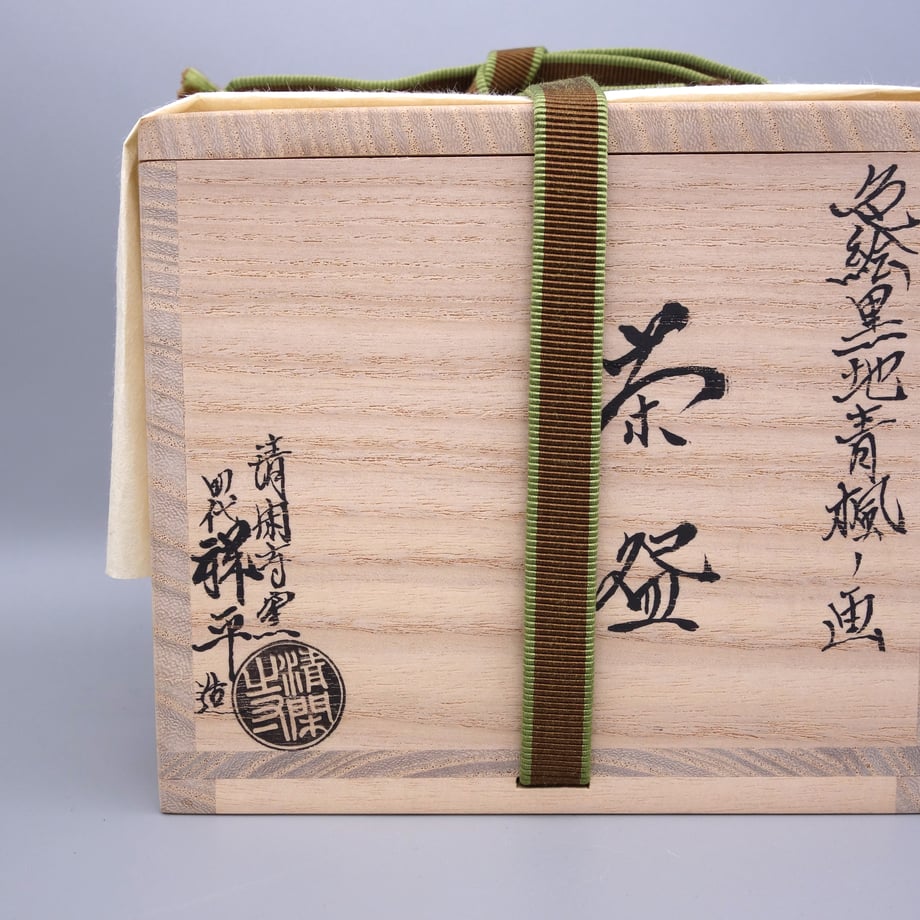 色絵黒地青楓ノ画
茶盌
清閑寺窯
四代祥平造
清閑寺